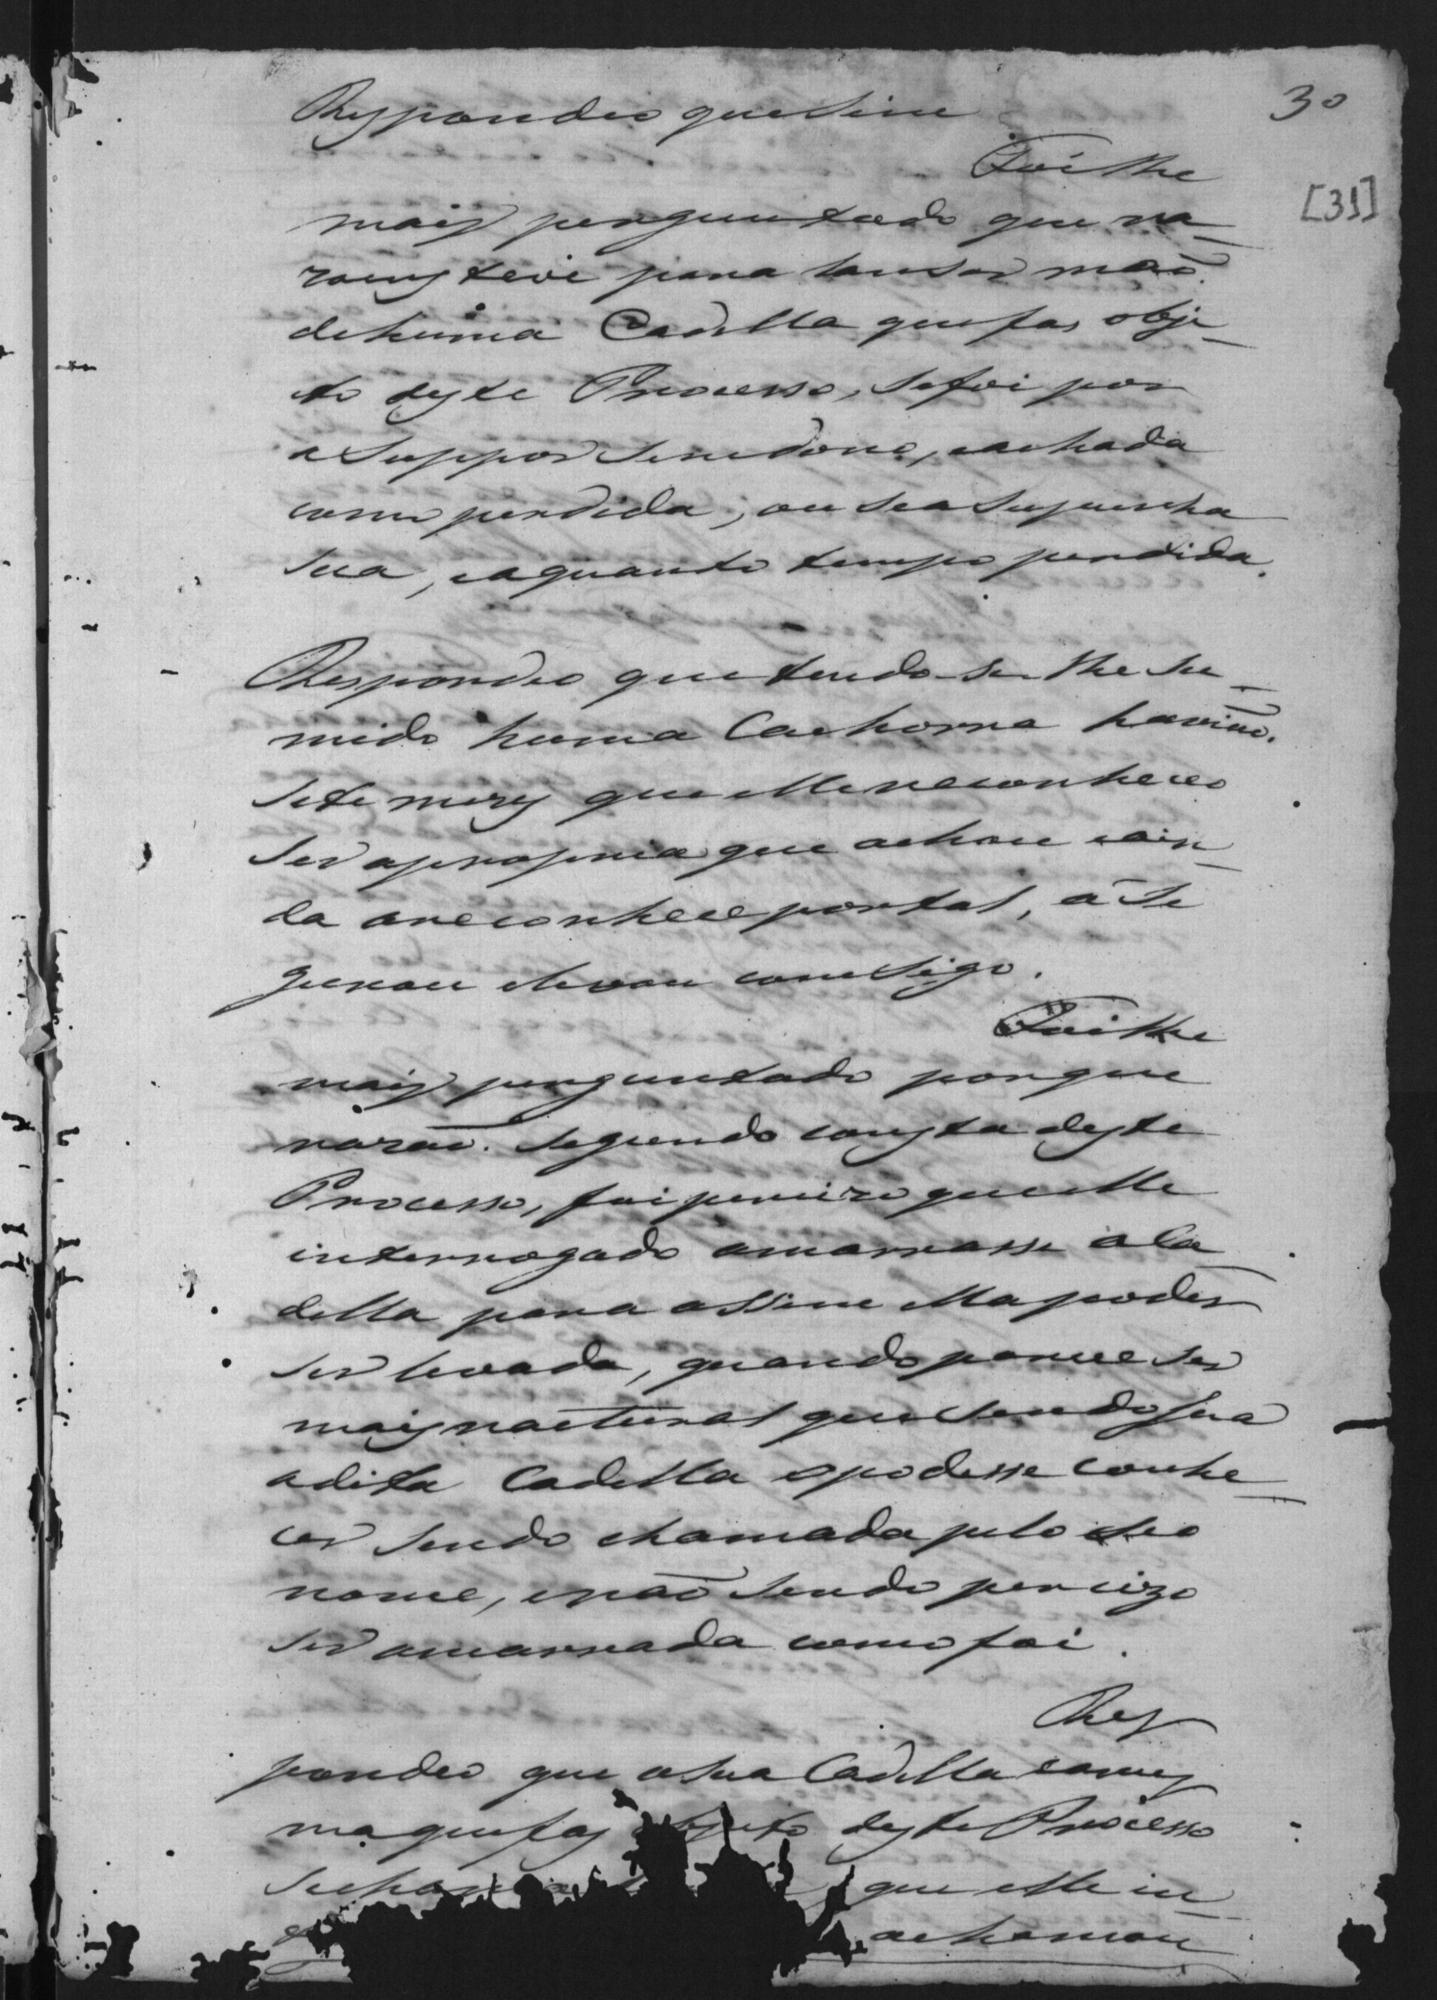 30
[31]
Respondeo que Sim
Foi lhe
mais perguntado que ra-
zoens teve para lansar maõ
de huma Cadella que fas obje-
to deste Processo, se foi por
a suppor sem dono, e achada
como perdida, ou se a supunha
sua, e a quanto tempo perdida.
Respondeo que tendo-se lhe su-
mido huma Cachorra haviaõ
sete mezes que elle reconheceo
ser a propria que achou e ain-
da a reconhece por tal, a se
gurou e levou comsigo.
Foi lhe
mais perguntado por que
razaõ. segundo consta deste
Processo, foi percizo que elle
interrogado amarrasse a Ca
della para assim ella poder
ser levada, quando parece ser
mais natural que sendo sua
a dita Cadella o podesse conhe-
cer sendo chamada pelo seo
nome, e naõ sendo percizo
ser amarrada como foi.
Res
pondeo que a sua Cadella a mes
ma que fas objeto deste Processo
que elle in-
achamou